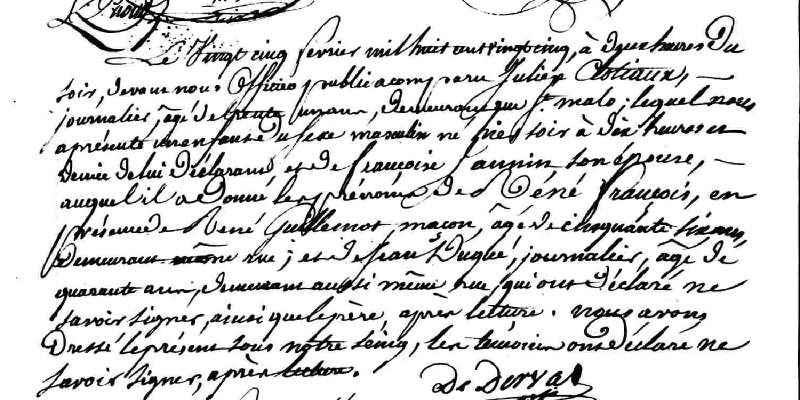 Le Vingt cinq fevrier mil huit cent vingt cinq, à deux heures du
soir, devant nous officier public a comparu Julien
journalier, âgé de trente un ans, demeurant rue St malo; lequel nous
a présenté un enfant du sexe masculin né hier soir à dix heures et
demie de lui déclarant et de françoise Jamin son épouse,
auquel il a donné les prénoms de Réné François, en
présence de René Guillemot, maçon, âgé de cinquante six ans,
demeurant même rue; et de Jean Dugué, journalier, âgé de
quarante ans, demeurant aussi même rue, qui ont déclaré ne
savoir signer, ainsi que le père, après lecture. nous avons
Dressé le présent sous notre seing, les témoins ont déclaré ne
savoir signer, après lecture.
De Derval